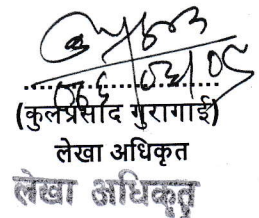 (कुलप्रसाद गुरागाई)
लेखा अधिकृत
लेखा अधिकृत